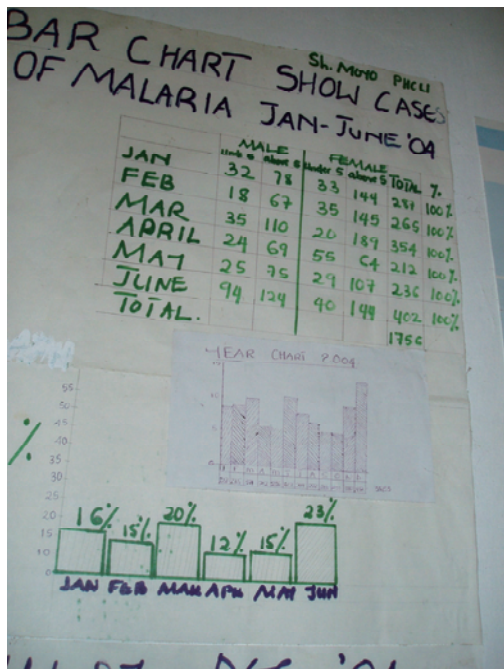 BAR CHART SHOW CASES
Sh. Moyo PHCU
OF MALARIA JAN-JUNE '04
MALE FEMALE
under 5 above 5 under 5 above 5 TOTAL %
JAN 32 78 33 144 287 100%
FEB 18 67 35 145 265 100%
MAR 35 110 20 189 354 100%
APRIL 24 69 55 64 212 100%
MAY 25 75 29 107 236 100%
JUNE 94 124 40 144 402 100%
TOTAL. 1756
YEAR CHART 2004
55
50
45
40
35
30
25
20
15
10
0
%
16% 15% 20% 12% 15% 23%
JAN FEB MAR APR MAY JUN